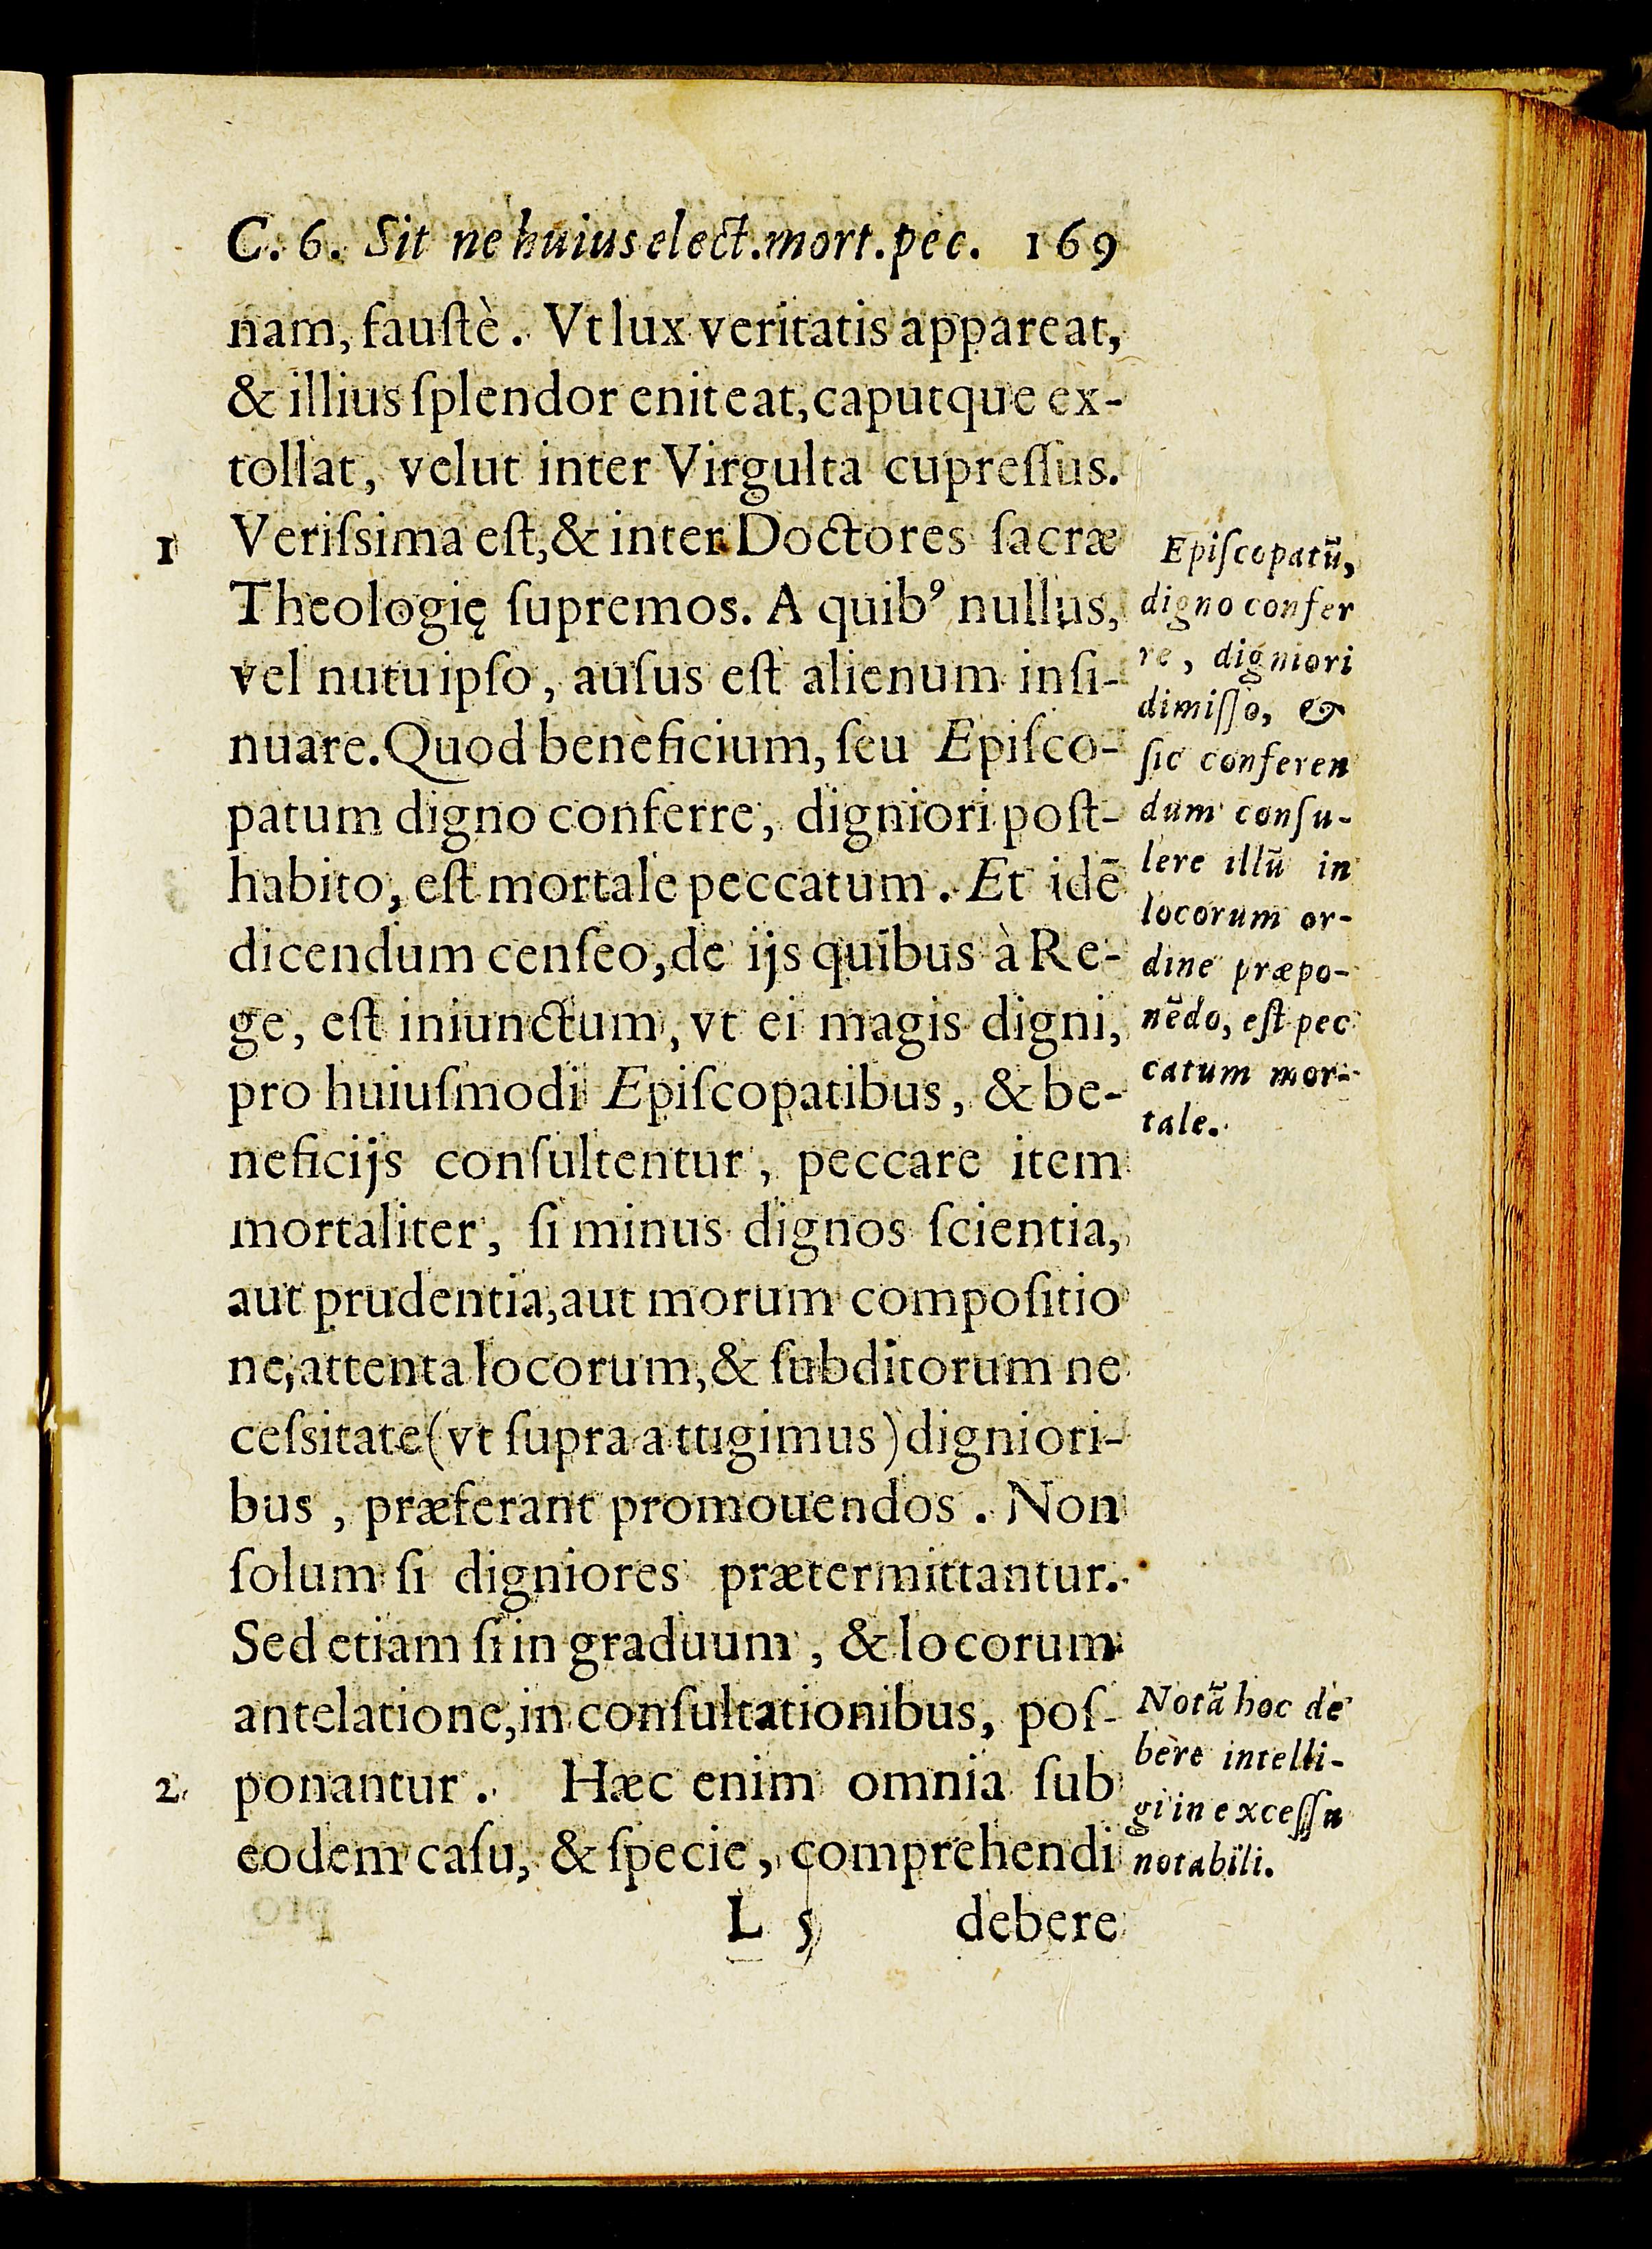 C. 6. Sit ne huius elect. mort. pec. 169
nam, fauſtè. Vt lux veritatis appareat,
& illius ſplendor eniteat, caputque ex-
tollat, velut inter Virgulta cupreſſus.
1 Veriſsima eſt, & inter Doctores ſacræ
Theologię ſupremos. A quibꝰ nullus,
vel nutu ipſo, auſus eſt alienum inſi-
nuare. Quod beneficium, ſeu Epiſco-
patum digno conferre, digniori poſt-
habito, eſt mortale peccatum. Et idē
dicendum cenſeo, de ijs quibus à Re-
ge, eſt iniunctum, vt ei magis digni,
pro huiuſmodi Epiſcopatibus, & be-
neficijs conſultentur, peccare item
mortaliter, ſi minus dignos ſcientia,
aut prudentia, aut morum compoſitio
ne, attenta locorum, & ſubditorum ne
ceſsitate (vt ſupra attigimus) digniori-
bus, præferant promouendos. Non
ſolum ſi digniores prætermittantur.
Sed etiam ſi in graduum, & locorum
antelatione, in conſultationibus, poſ-
2. ponantur. Hæc enim omnia ſub
eodem caſu, & ſpecie, comprehendi
L 5 debere
Epiſcopatū,
digno confer
re, digniori
dimiſſo, &
ſic conferen
dum conſu-
lere illū in
locorum or-
dine præpo-
nēdo, eſt pec
catum mor-
tale.
Notā hoc de
bere intelli-
gi in exceſſu
notabili.